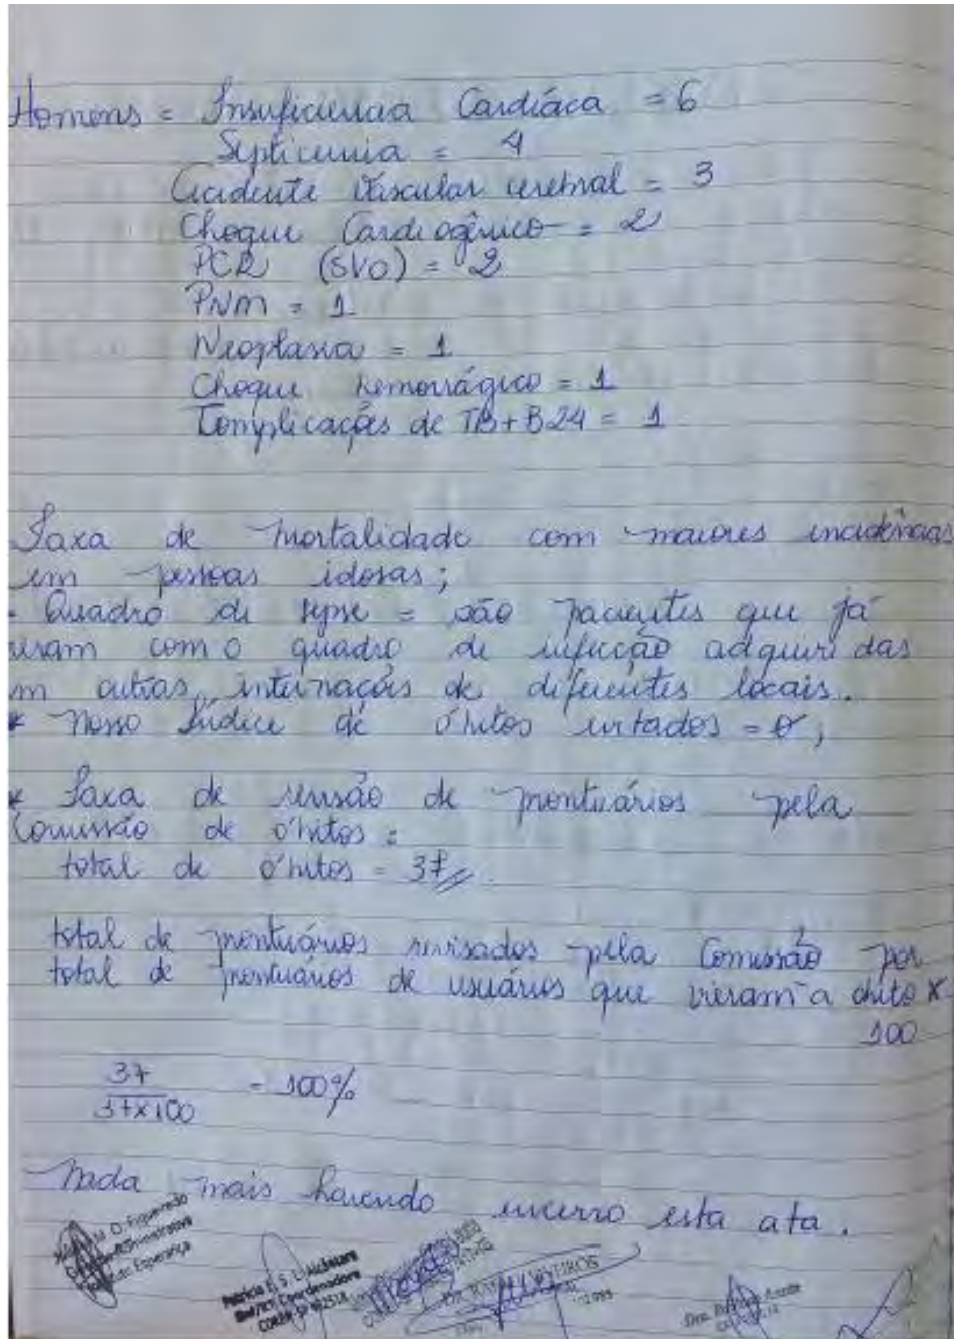 Homens = Insuficiencia Cardiáca = 6
Septicemia = 4
Acidente Vascular cerebral = 3
Choque Cardiogênico = 2
PCR (SVO) = 2
PNM = 1
Neoplasia = 1
Choque hemorrágico = 1
Complicações de TB+B24 = 1
Taxa de mortalidade com maiores incidências
em pessoas idosas;
- Quadro de sepse = são pacientes que já
vieram com o quadro de infecção adquiridas
em outras internações de diferentes locais.
* Nosso Índice de óbitos evitados = 0;
* Taxa de revisão de prontuários pela
Comissão de óbitos =
total de óbitos = 37
total de prontuários revisados pela Comissão por
total de prontuários de usuários que vieram a óbito x
100
37
37x100 = 100%
Nada mais havendo encerro esta ata.
M. O. Figueiredo
Administrativa
Esperança
Patricia E. S. L.
Coordenadora
COREN SP
Dr.
Dra.